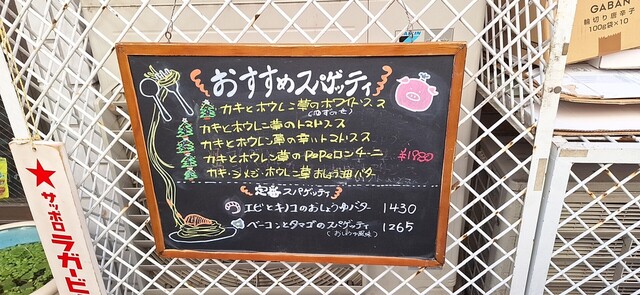 GABAN
輪切り唐辛子
100g袋×10
おすすめスパゲッティ
カキとホウレン草のホワイトソース
(ゆずのせ)
カキとホウレン草のトマトソース
カキとホウレン草の辛いトマトソース
カキとホウレン草のPePeロンチーニ
¥1980
カキ・シメジ・ホウレン草おしょう油バター
定番スパゲッティ
エビとキノコのおしょうゆバター 1430
ベーコンとタマゴのスパゲッティ 1265
(おしょうゆ風味)
★サッポロラガービ